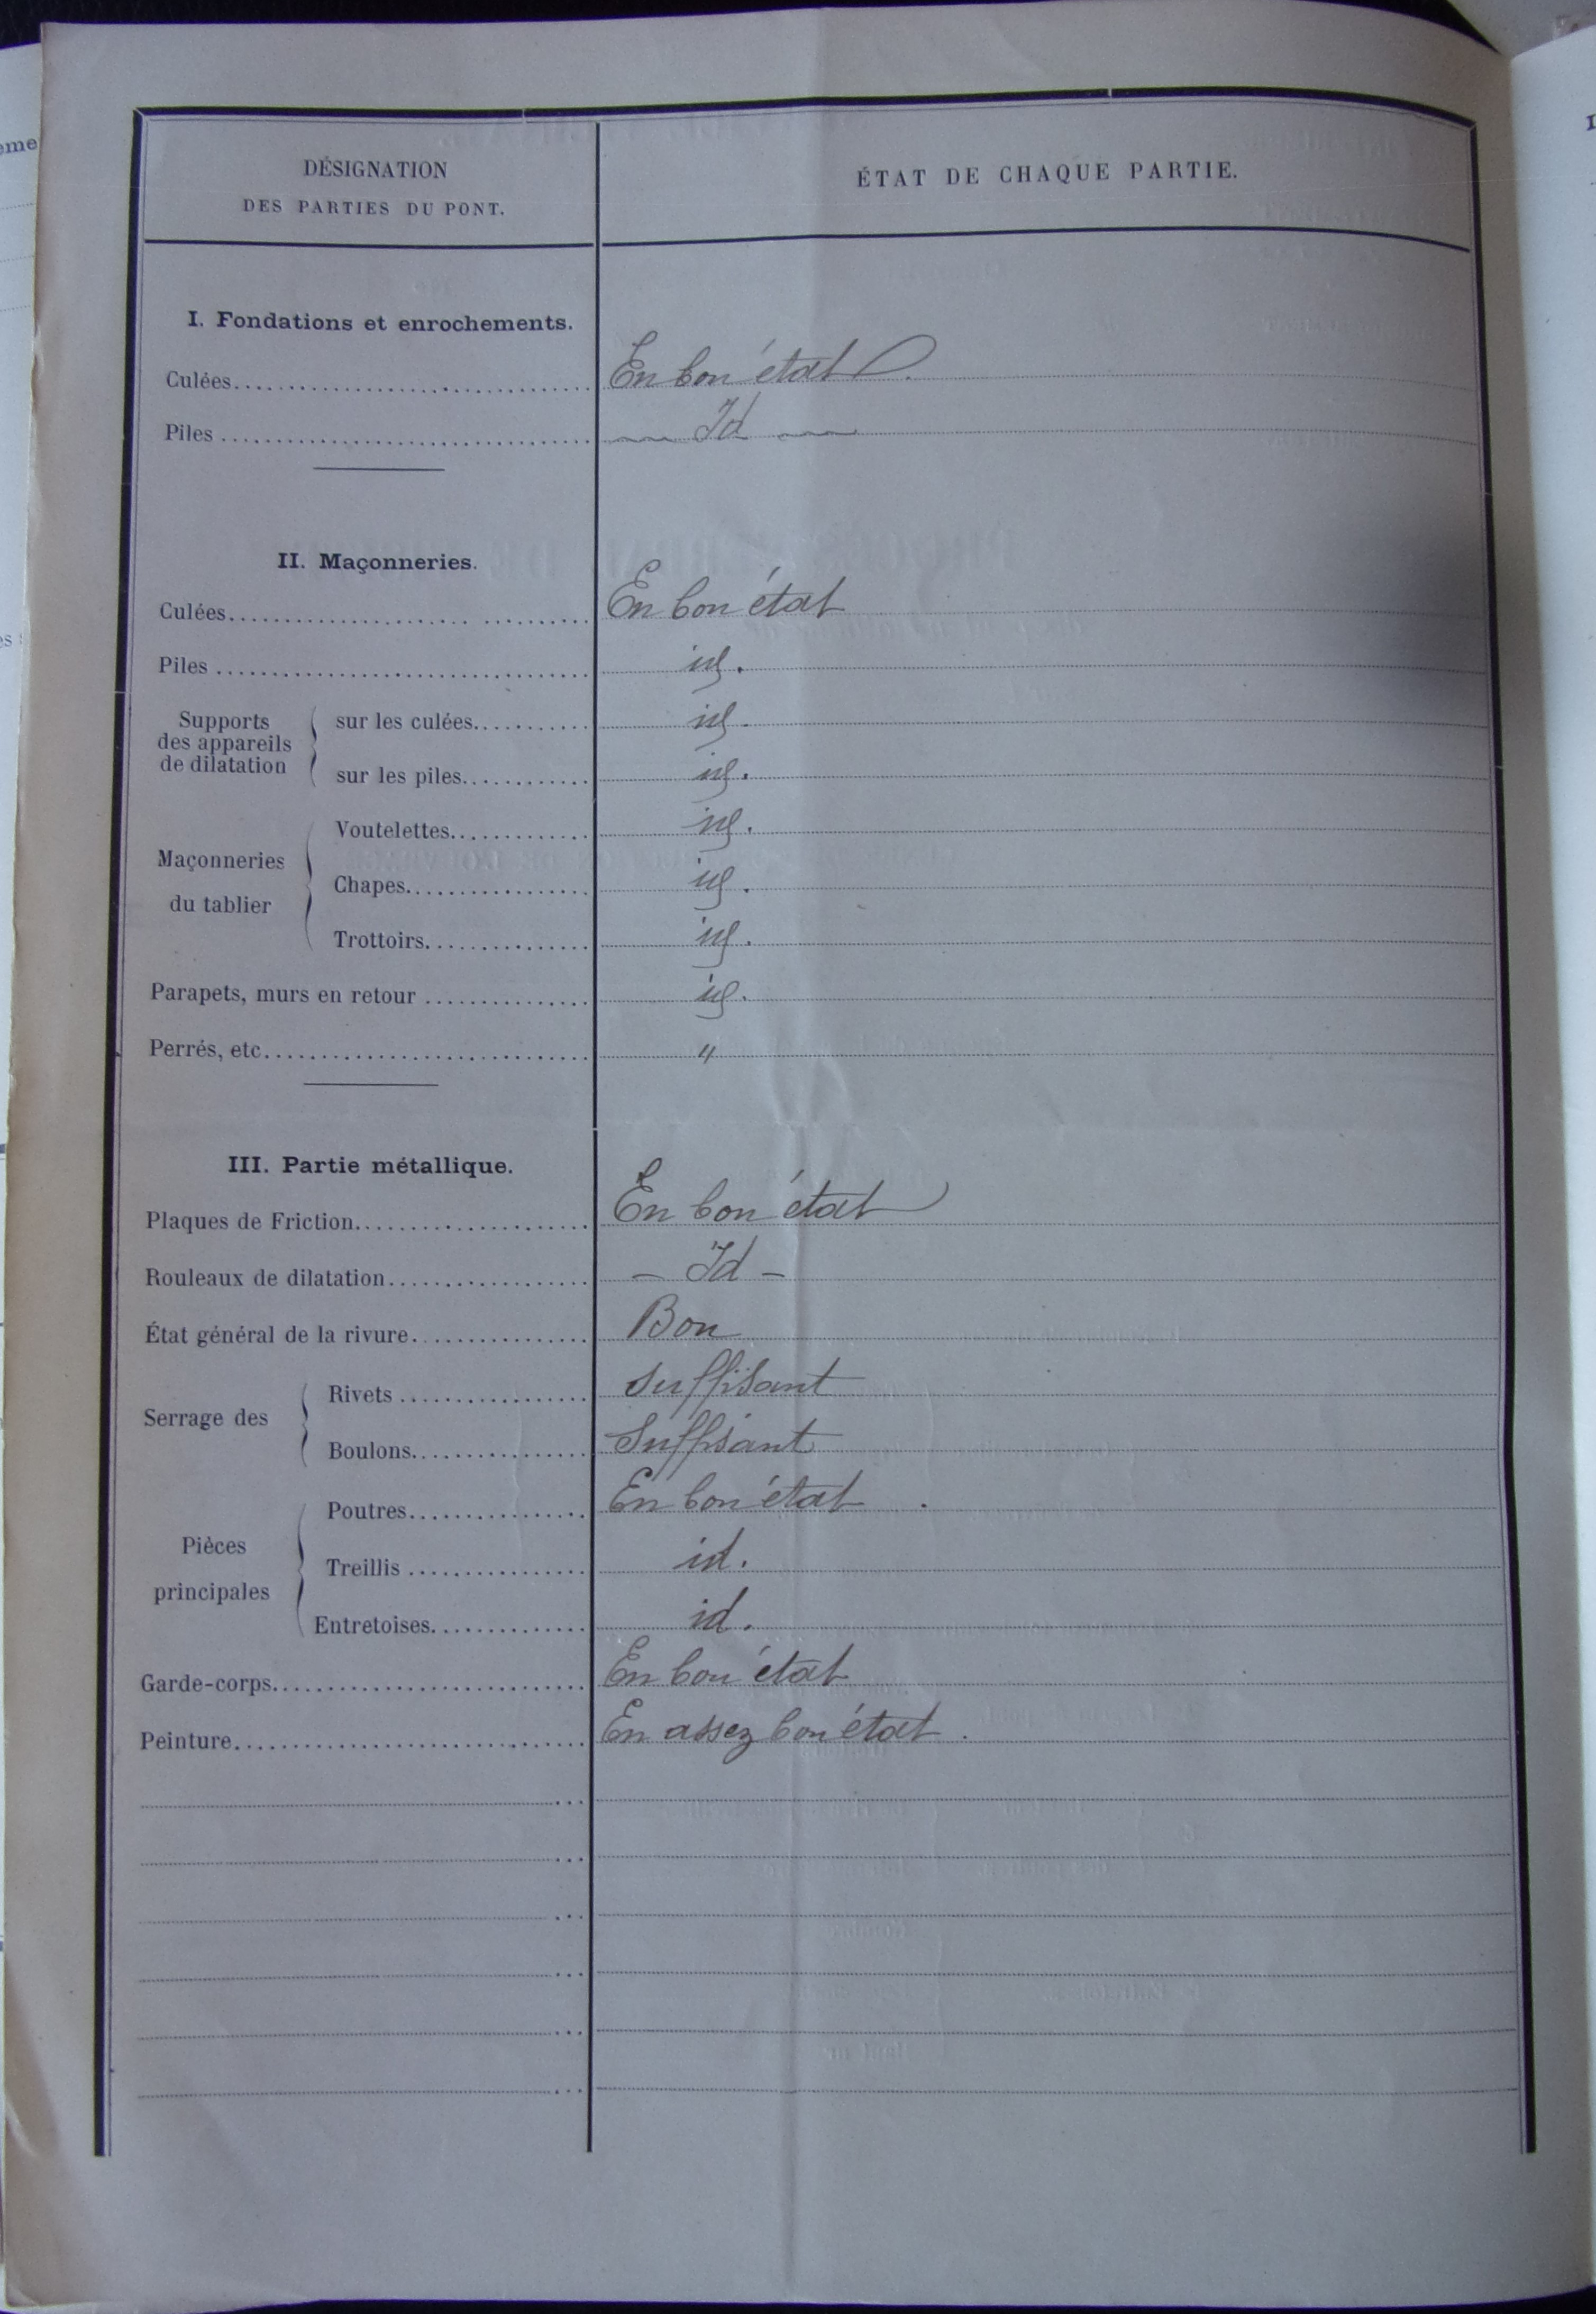 DÉSIGNATION
DES PARTIES DU PONT.
ÉTAT DE CHAQUE PARTIE.
I. Fondations et enrochements.
Culées En bon état
Piles Id
II. Maçonneries.
Culées En bon état
Piles id.
Supports des appareils de dilatation
sur les culées id.
sur les piles id.
Maçonneries du tablier
Voutelettes id.
Chapes id.
Trottoirs id.
Parapets, murs en retour id.
Perrés, etc "
III. Partie métallique.
Plaques de Friction En bon état
Rouleaux de dilatation – Id –
État général de la rivure Bon
Serrage des
Rivets suffisant
Boulons Suffisant
Pièces principales
Poutres En bon état .
Treillis id.
Entretoises id.
Garde-corps En bon état
Peinture En assez bon état .